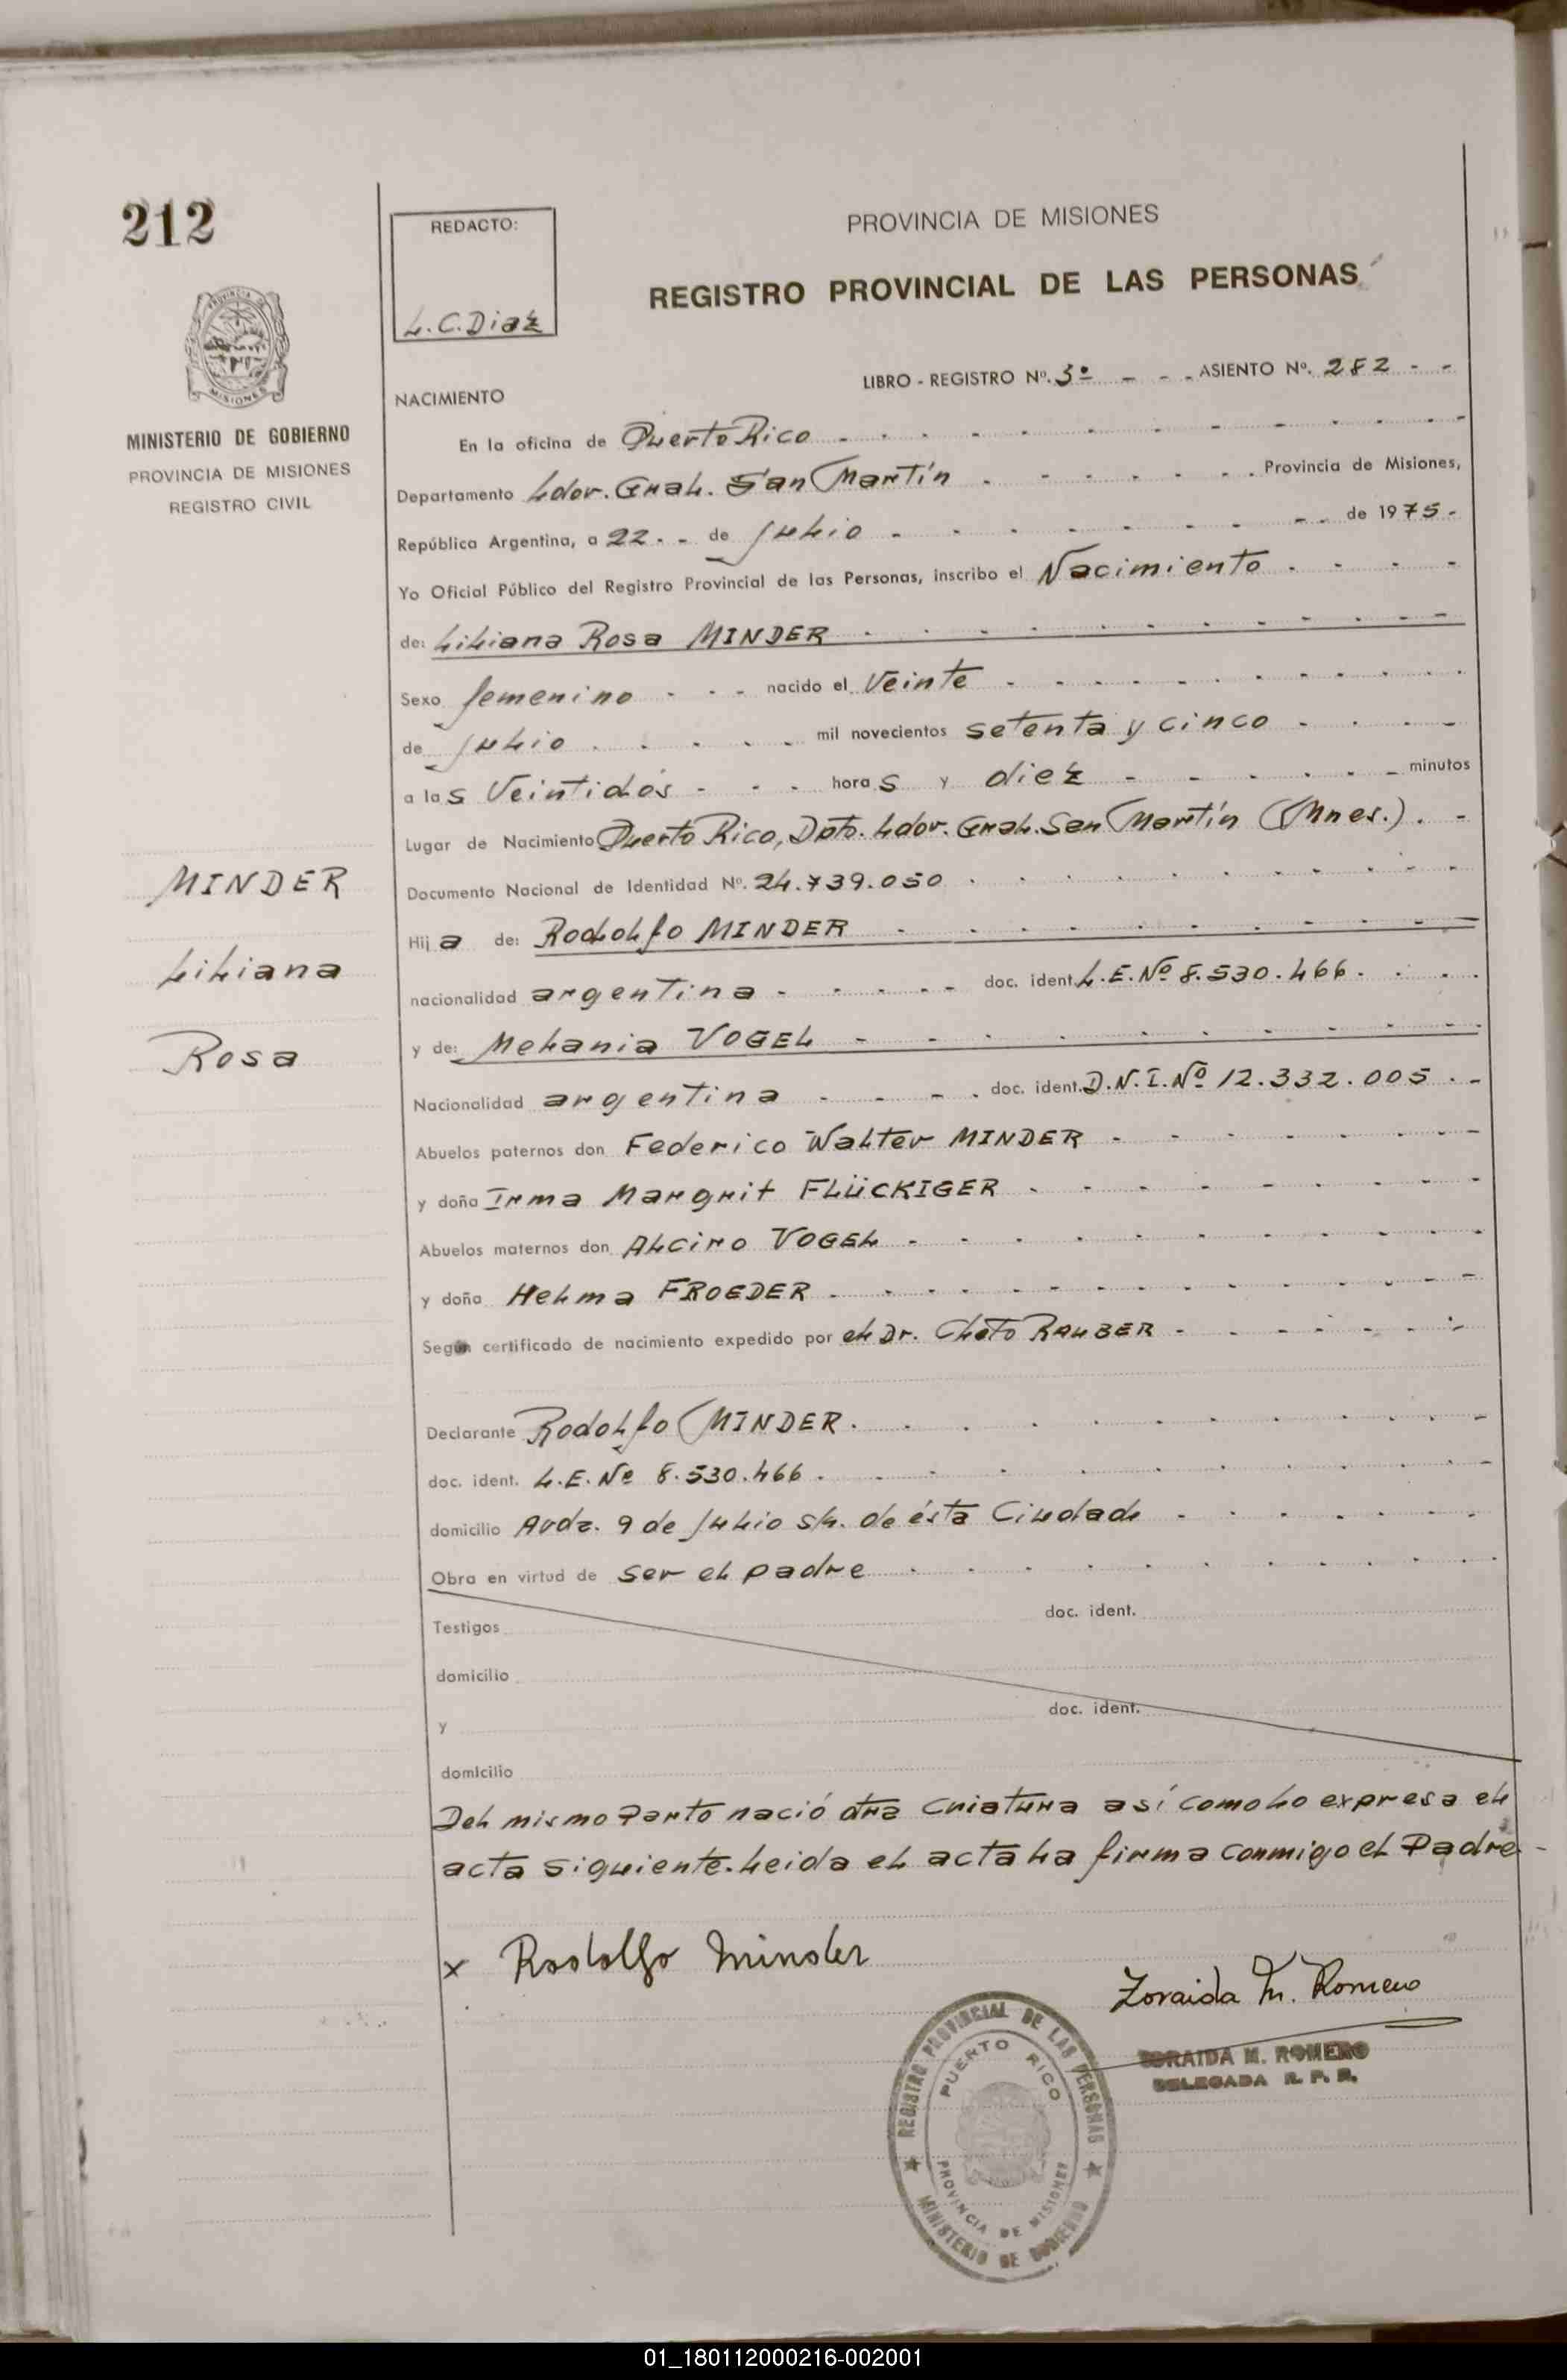 212
REDACTO:
L.C.Diaz
PROVINCIA DE MISIONES
REGISTRO PROVINCIAL DE LAS PERSONAS
MISIONES
MINISTERIO DE GOBIERNO
PROVINCIA DE MISIONES
REGISTRO CIVIL
LIBRO - REGISTRO Nº. 3º - - - ASIENTO Nº. 282 - -
NACIMIENTO
En la oficina de Puerto Rico
Departamento Ldor. Gral. San Martín Provincia de Misiones,
República Argentina, a 22. - de Julio de 1975.
Yo Oficial Público del Registro Provincial de las Personas, inscribo el Nacimiento
de: Liliana Rosa MINDER
Sexo femenino - - - nacido el Veinte
de Julio mil novecientos setenta y cinco
a las Veintidós - - - horas y diez minutos
Lugar de Nacimiento Puerto Rico, Dpto. Ldor. Gral. San Martín (Mnes.). -
MINDER
Documento Nacional de Identidad Nº. 24.739.050
Hija de: Rodolfo MINDER
Liliana
nacionalidad argentina doc. ident. L.E.Nº 8.530.466.
y de: Melania VOGEL
Rosa
Nacionalidad argentina doc. ident. D.N.I.Nº 12.332.005
Abuelos paternos don Federico Walter MINDER
y doña Irma Margrit FLÜCKIGER
Abuelos maternos don Alciro VOGEL
y doña Helma FROEDER
Según certificado de nacimiento expedido por el Dr. Cleto RAUBER
Declarante Rodolfo MINDER.
doc. ident. L.E. Nº 8.530.466.
domicilio Avda. 9 de Julio s/n. de ésta Ciudad
Obra en virtud de ser el padre
Testigos doc. ident.
domicilio
y doc. ident.
domicilio
Del mismo Parto nació otra criatura así como lo expresa el
acta siguiente. Leida el acta la firma conmigo el Padre -
x Rodolfo Minder
Zoraida M. Romero
ZORAIDA M. ROMERO
DELEGADA R. P. P.
REGISTRO PROVINCIAL DE LAS PERSONAS
PUERTO RICO
PROVINCIA DE MISIONES
MINISTERIO DE GOBIERNO
01_180112000216-002001